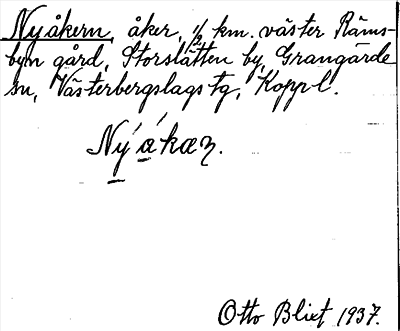 Nyåkern, åker, 1/2 km. väster Räms-
byn gård, Storslätten by, Grangärde
sn, Västerbergslags tg, Koppl.
Ny´a´kaꝛ.
Otto Blixt 1937.